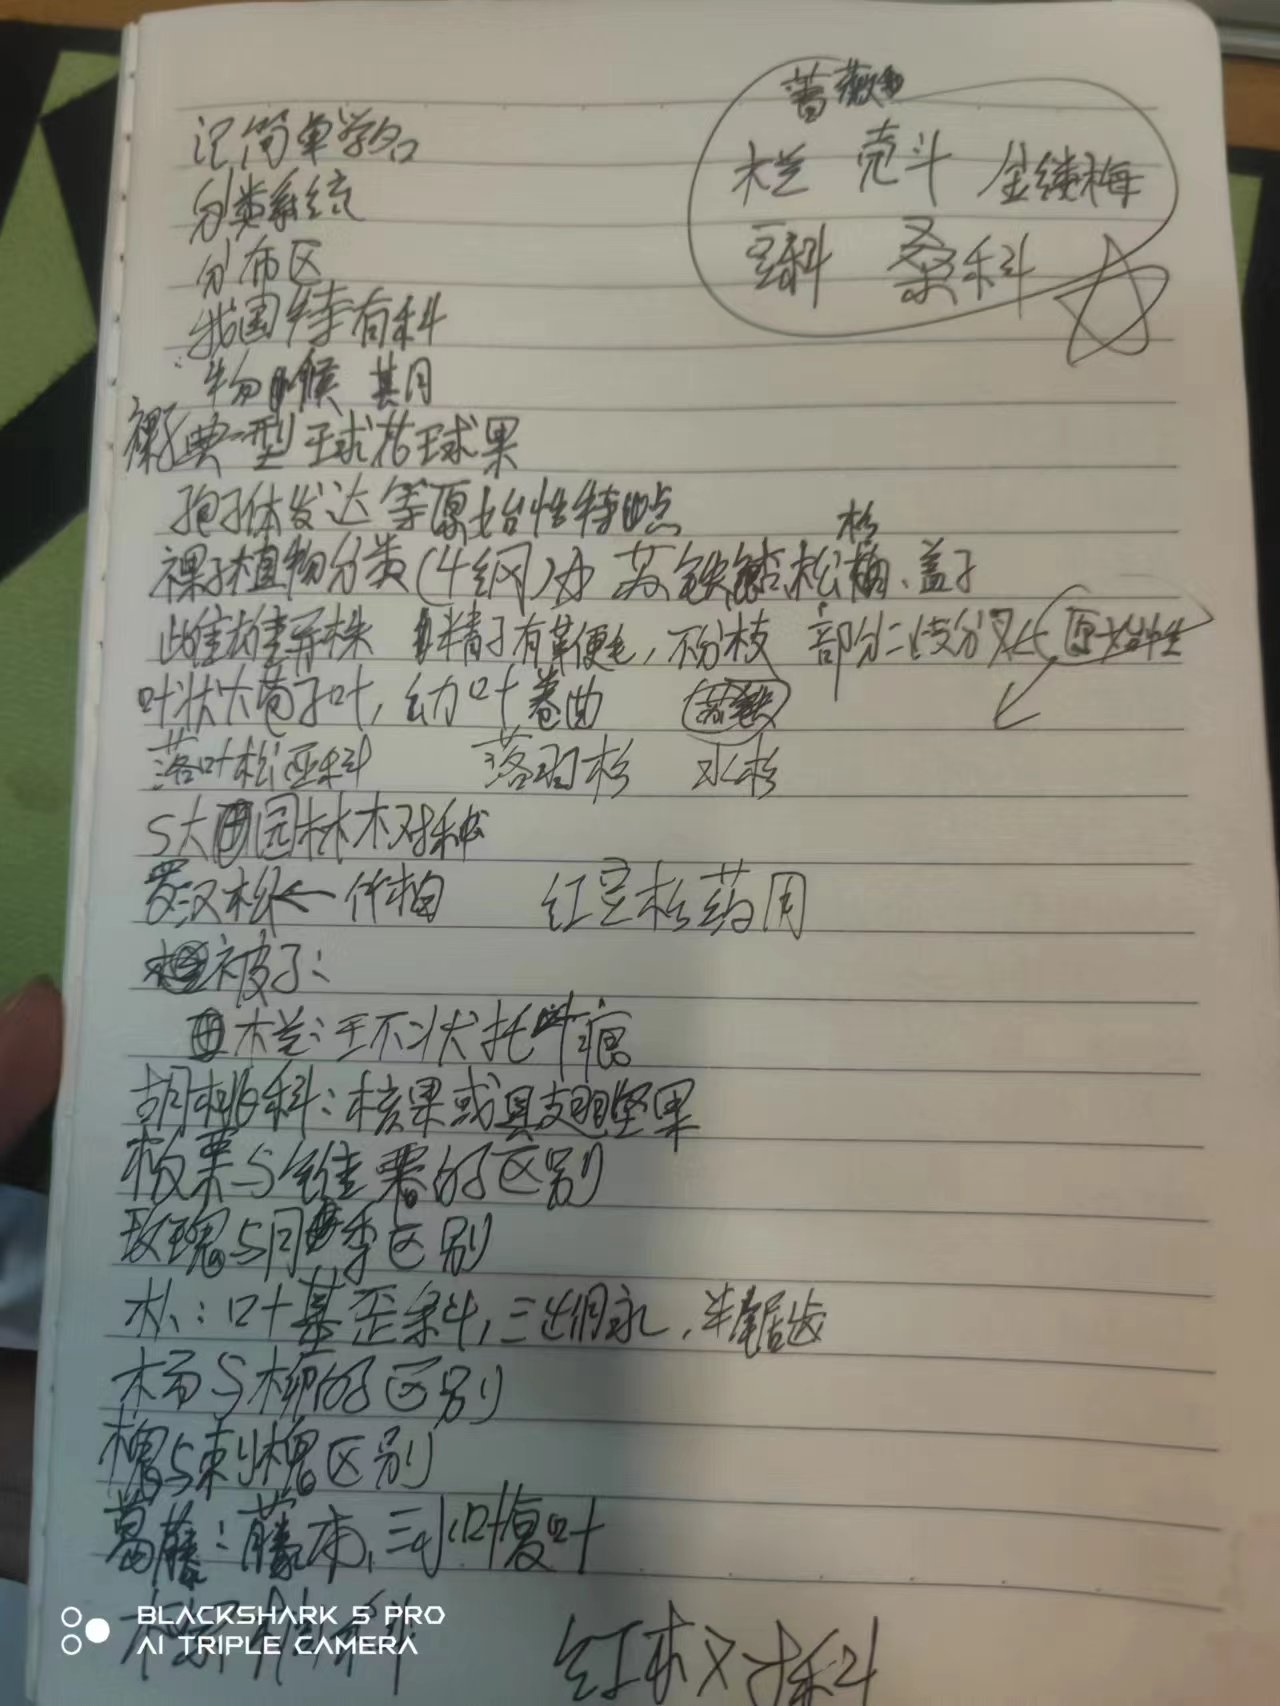 蔷薇
木兰 壳斗 金缕梅
豆科 桑科
记简单学名
分类系统
分布区
我国特有科
物候 其月
裸子典型 球花球果
孢子体发达等原始性特点
裸子植物分类(4纲)为 苏铁、银杏、松杉、盖子
雌雄异株 精子有鞭毛,不分枝 部分二歧分叉← 原始性
叶状大孢子叶,幼叶卷曲 苏铁
落叶松亚科 落羽杉 水杉
5大园林树种
罗汉松←竹柏 红豆杉药用
被子:
木兰:环状托叶痕
胡桃科:核果或具翅坚果
板栗与锥栗的区别
玫瑰与月季区别
朴:叶基歪斜,三出脉,半锯齿
杨与柳的区别
槐与刺槐区别
葛藤:藤本,三小叶复叶
红树科
BLACKSHARK 5 PRO
AI TRIPLE CAMERA